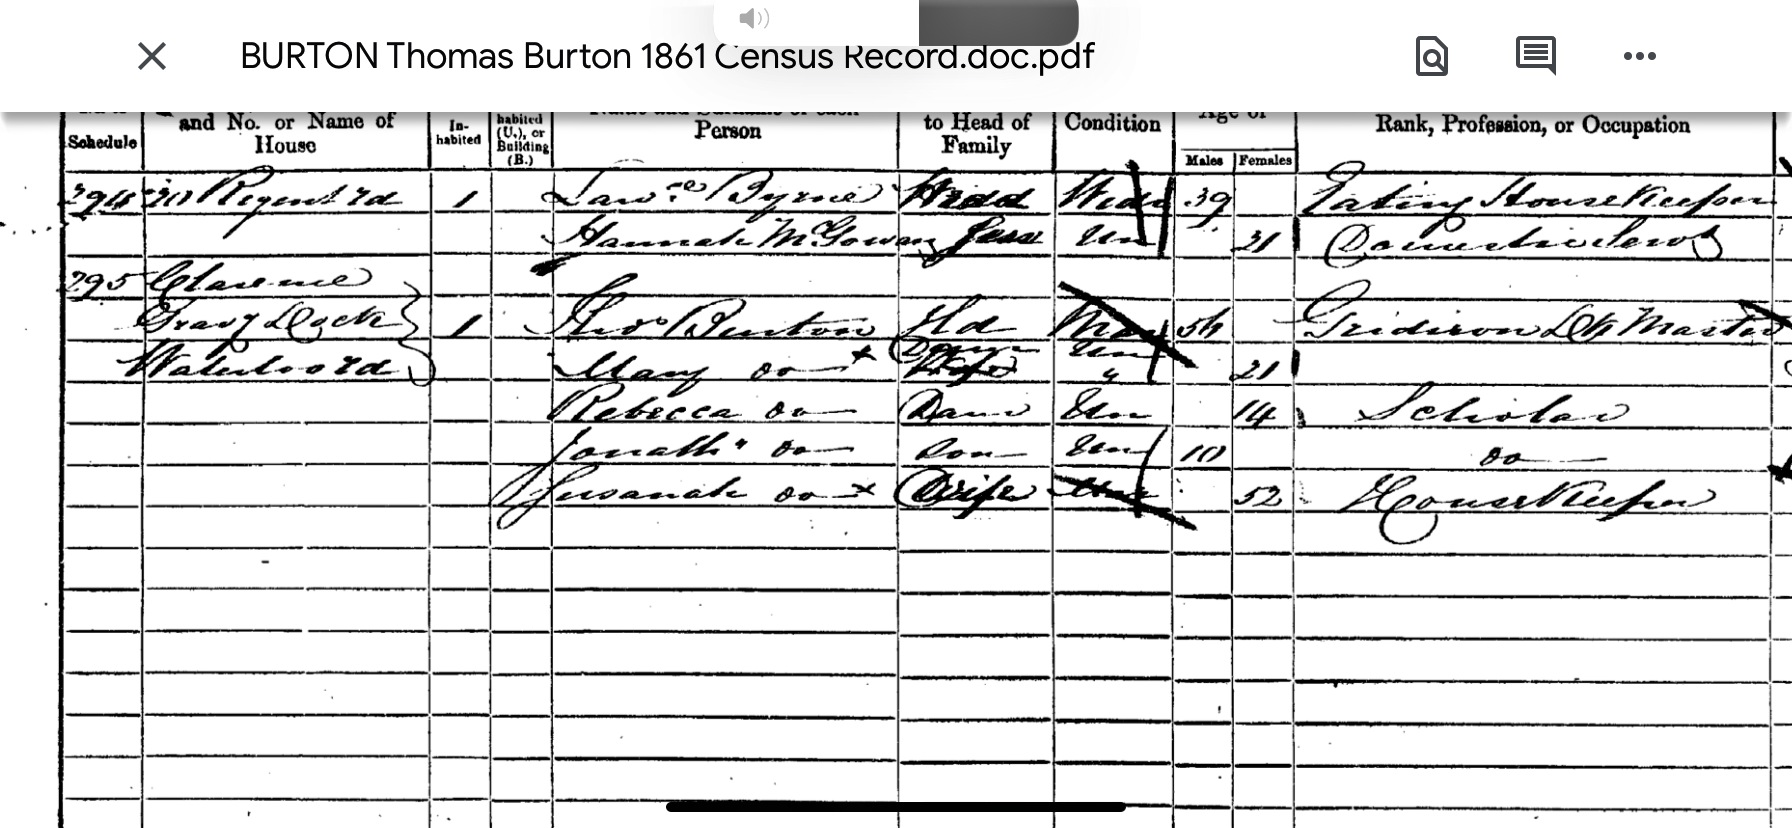 BURTON Thomas Burton 1861 Census Record.doc.pdf
Schedule and No. or Name of House In-habited habited (U.), or Building (B.) Name and Surname of each Person to Head of Family Condition Age of Males Females Rank, Profession, or Occupation
294 30 Regent Rd 1 Lawce Byrne Head Widr 39 Eating House Keeper
Hannah McGowan Serv Un 21 Domestic Serv
295 Clarence
Grav Dock 1 Thos Burton Hd Mar 54 Gridiron Dk Master
Waterloo Rd Mary do x Un 21
Rebecca do Daur Un 14 Scholar
Jonathn do Son Un 10 do
Susanah do x Wife 52 House Keeper